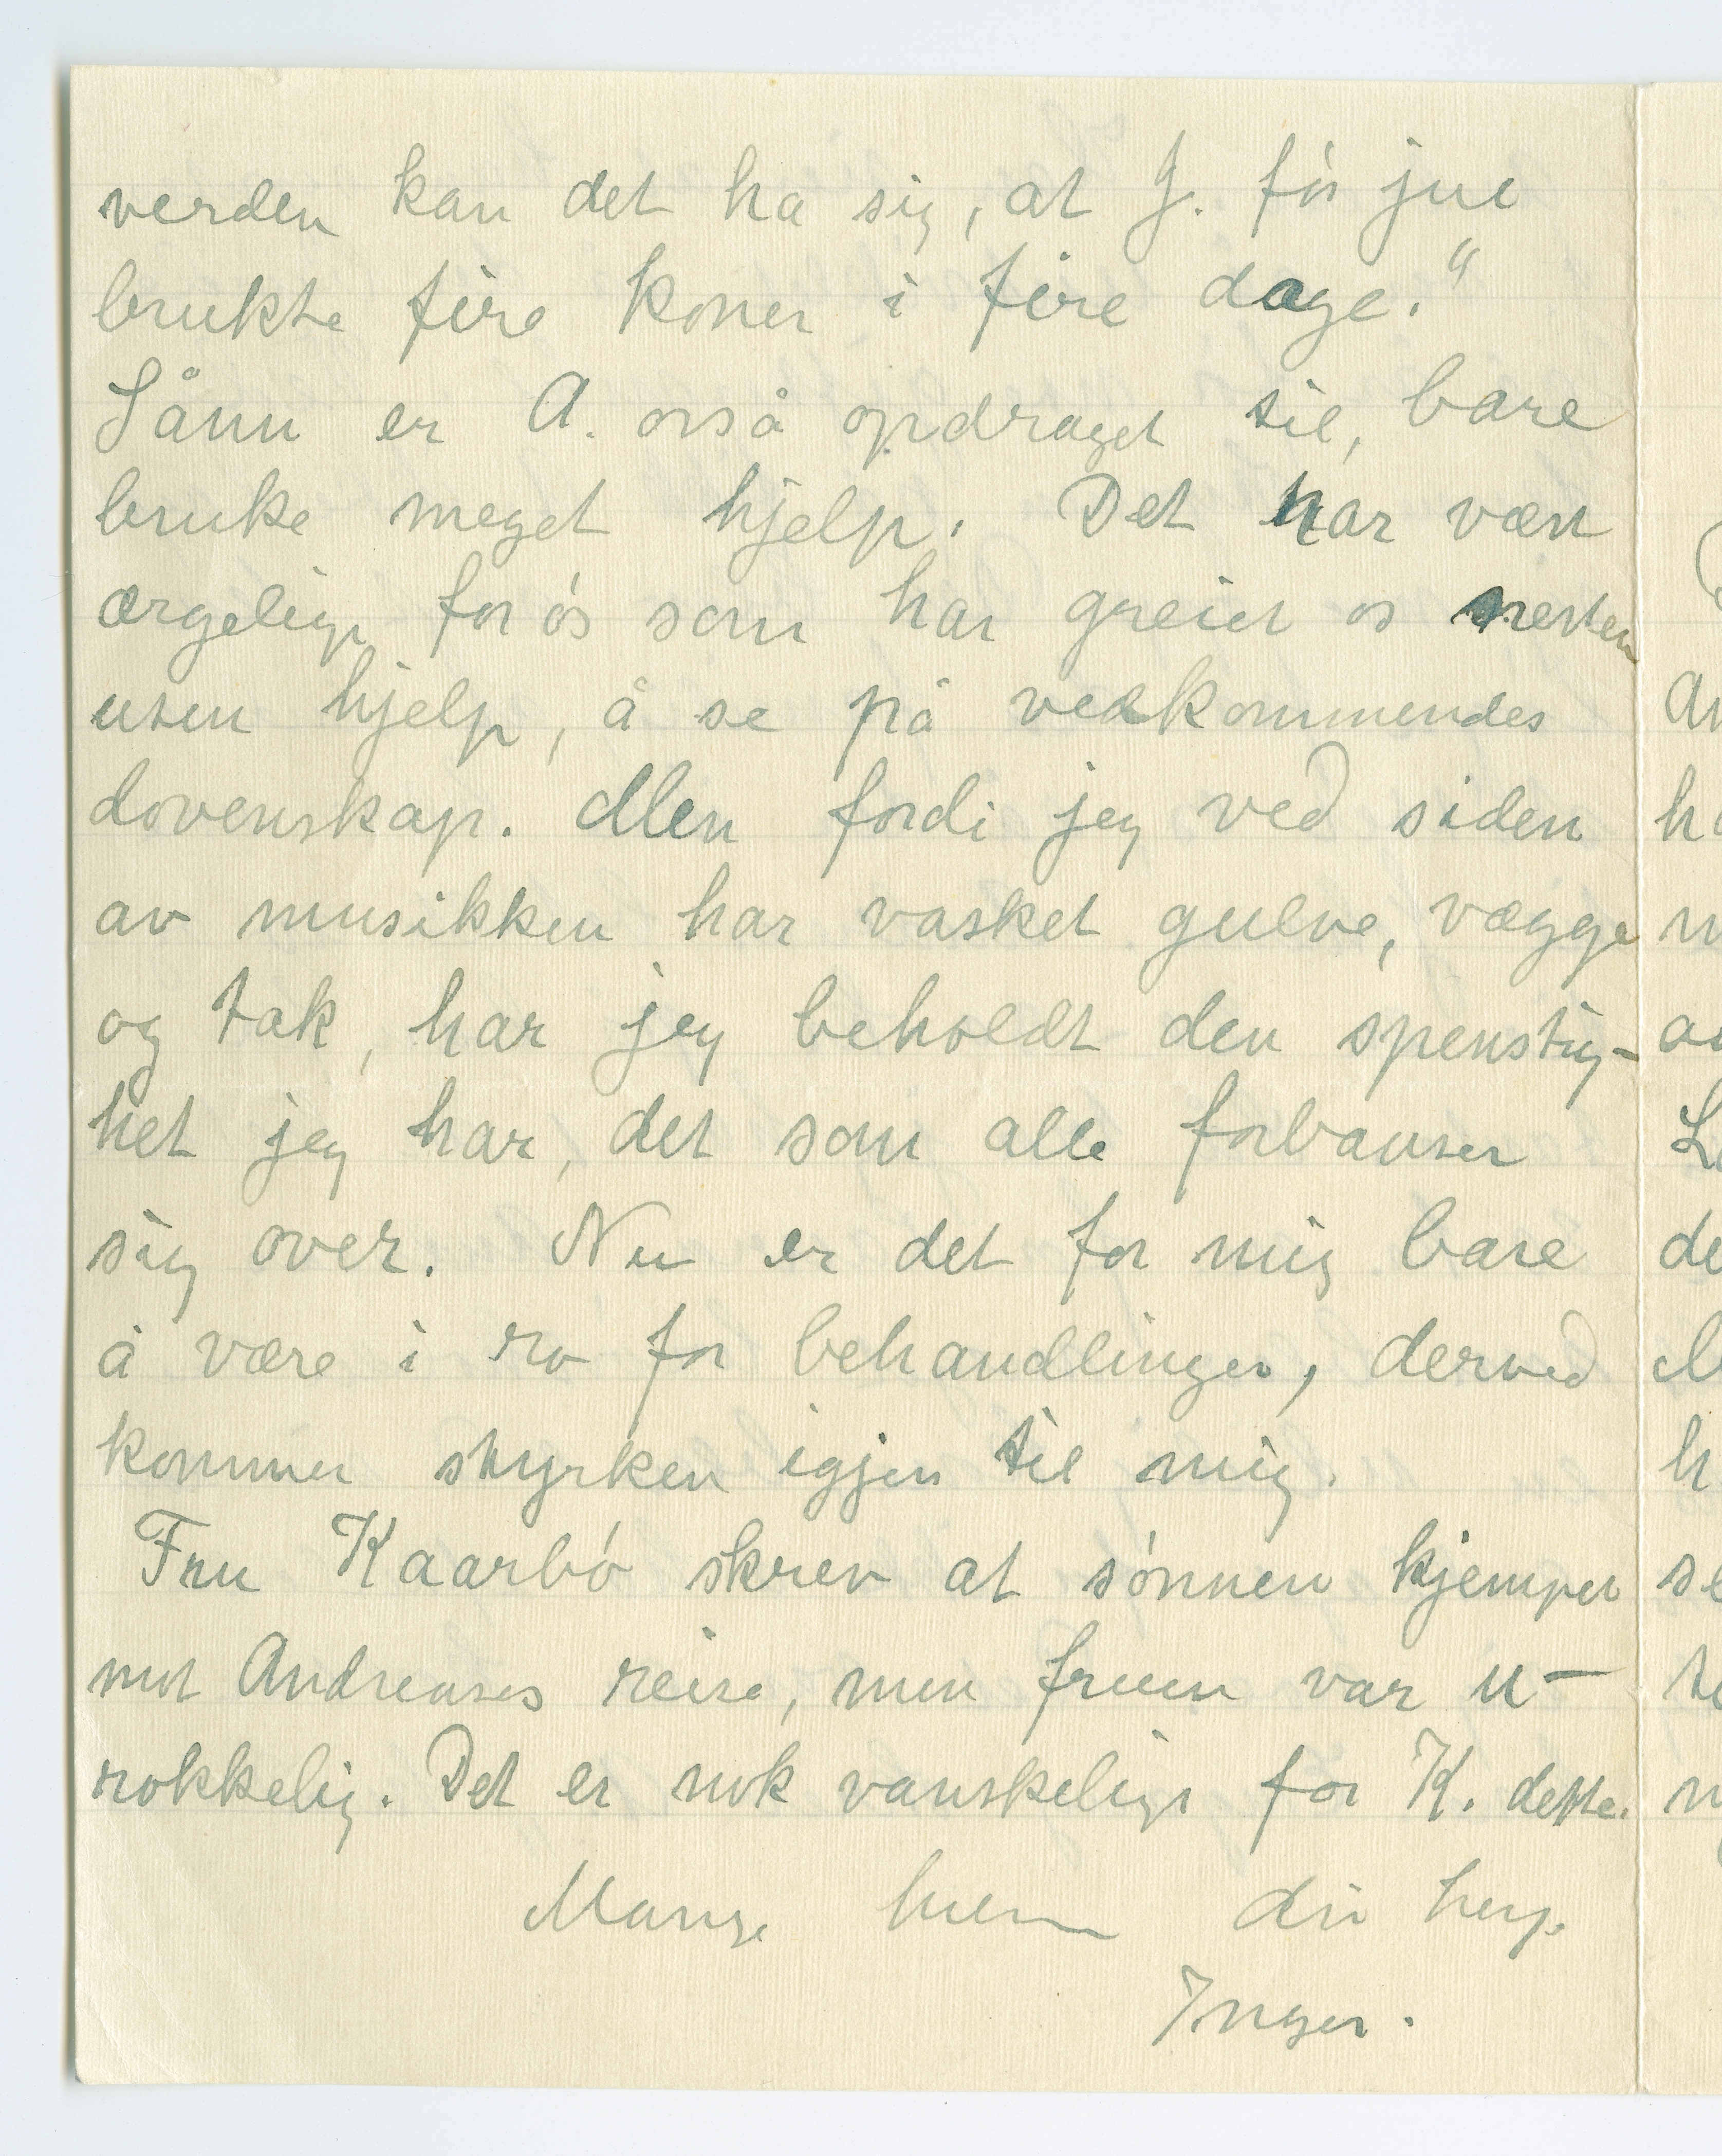 verden kan det ha sig, at J. før jul
brukte fire koner i fire dage."
Sånn er A. også opdraget til, bare
bruke meget hjelp. Det har vært
ærgelig for os som har greiet os nesten
uten hjelp, å se på vedkommendes
dovenskap. Men fordi jeg ved siden
av musikken har vasket gulve, vægge
og tak, har jeg beholdt den spenstig-
het jeg har, det som alle forbauser
sig over. Nu er det for mig bare
å være i ro for behandlinger, derved
kommer styrken igjen til mig.
Fru Kaarbø skrev at sønnen kjempet
mot Andreases reise, men fruen var u-
rokkelig. Det er nok vanskelig for K. dette.
Mange hilsen din heng.
Inger.
an
ha
de
h
se